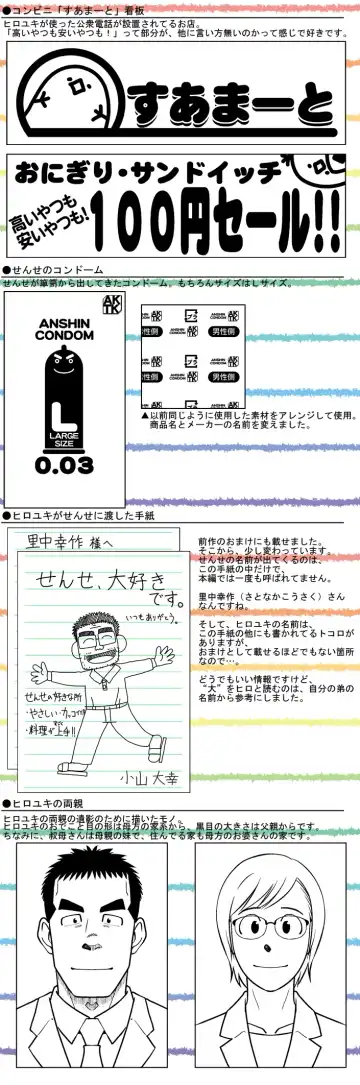 ●コンビニ「すあまーと」看板
ヒロユキが使った公衆電話が設置されてるお店。
「高いやつも安いやつも！」って部分が、他に言い方無いのかって感じで好きです。
すあまーと
おにぎり・サンドイッチ
高いやつも
安いやつも!
100円セール!!
●せんせのコンドーム
せんせが箪笥から出してきたコンドーム。もちろんサイズはLサイズ。
AK
TK
ANSHIN
CONDOM
L
LARGE
SIZE
0.03
男性側
ANSHIN
CONDOM
男性側
▲以前同じように使用した素材をアレンジして使用。
商品名とメーカーの名前を変えました。
●ヒロユキがせんせに渡した手紙
里中幸作 様へ
せんせ、大好き
です。
いつもありがとう。
せんせの好きな所
・やさしい・カッコイイ
・料理が上手!!
小山 大幸
前作のおまけにも載せました。
そこから、少し変わっています。
せんせの名前が出てくるのは、
この手紙の中だけで、
本編では一度も呼ばれてません。
里中幸作（さとなかこうさく）さん
なんですね。
そして、ヒロユキの名前は、
この手紙の他にも書かれてるトコロが
ありますが、
おまけとして載せるほどでもない箇所
なので…。
どうでもいい情報ですけど、
“大”をヒロと読むのは、自分の弟の
名前から参考にしました。
●ヒロユキの両親
ヒロユキの両親の遺影のために描いたモノ。
ヒロユキのおでこと目の形は母方の家系から、黒目の大きさは父親からです。
ちなみに、叔母さんは母親の妹で、住んでる家も母方のお婆さんの家です。